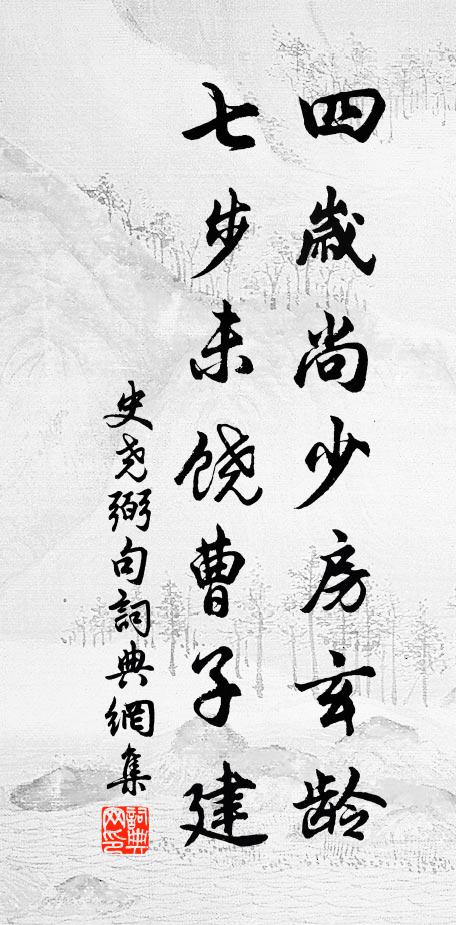 四歳尚少房玄龄
七步未饶曹子建
史尧弼句詞典網集
詞典网印